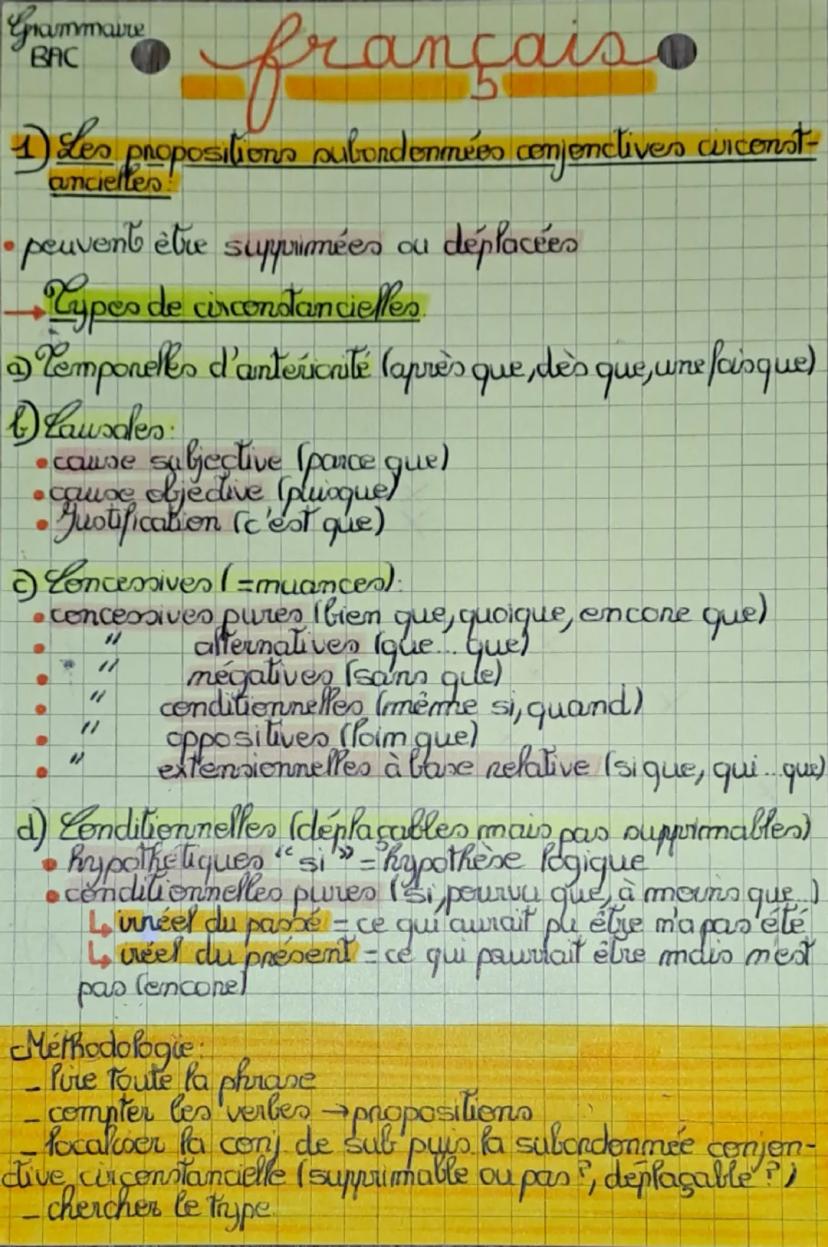 Grammaire
BAC
français
1) Les propositions subordonnées conjonctives circonst-
ancielles:
• peuvent être supprimées ou déplacées
→ Types de circonstancielles
a) Temporelles d'antériorité (après que, dès que, une fois que)
b) Causales:
• cause subjective (parce que)
• cause objective (puisque)
• Justification (c'est que)
c) Concessives (=nuances):
• concessives pures (bien que, quoique, encore que)
• " alternatives (que... que)
• " négatives (sans que)
• " conditionnelles (même si, quand)
• " oppositives (loin que)
• " extensionnelles à base relative (si que, qui...que)
d) Conditionnelles (déplaçables mais pas supprimables)
• hypothétiques "si" = hypothèse logique
• conditionnelles pures (si, pourvu que, à moins que...)
↳ irréel du passé = ce qui aurait pu être n'a pas été
↳ iréel du présent = ce qui pourrait être mais n'est
pas (encore)
Méthodologie:
- lire toute la phrase
- compter les verbes → propositions
- focaliser la conj. de sub puis la subordonnée conjon-
ctive circonstancielle (supprimable ou pas?, déplaçable?)
- chercher le type